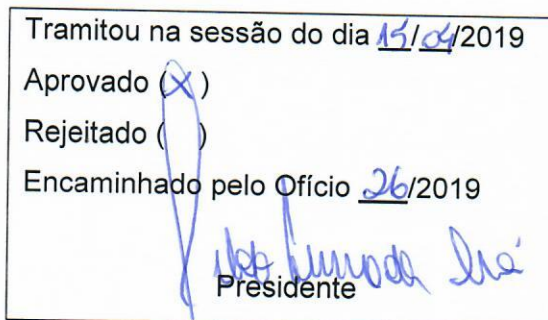 Tramitou na sessão do dia 15/04/2019
Aprovado (X)
Rejeitado ( )
Encaminhado pelo Ofício 26/2019
Presidente